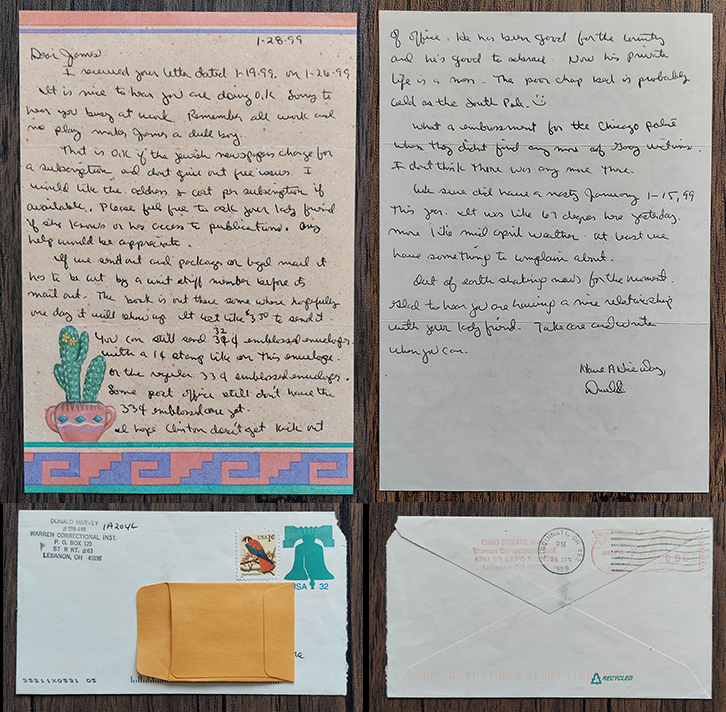 1-28-99
Dear James
I received your letter dated 1-19-99, on 1-26-99
It is nice to hear you are doing O.K Sorry to
hear you busy at work. Remember all work and
no play makes James a dull boy.
That is O.K if the Jewish newspapers charge for
a subscription and dont give out free issues. I
would like the address & cost per subscription if
available. Please feel free to ask your lady friend
if she knows or has access to publications. Any
help would be appreciate.
If we send out and packages or legal mail it
has to be out by a unit staff member before its
mail out. The book is out there some where hopefully
one day it will show up. It cost like $3.50 to send it
You can still send 32 ¢ emblossed envelopes
with a 1¢ stamp like on this envelope
or the regular 33¢ emblossed envelopes.
Some post office still don't have the
33¢ emblossed one yet.
I hope Clinton doesn't get kick out
of office. He has been good for the country
and he's good to Israel. Now his private
life is a mess. The poor chap bed is probably
cold as the South Pole.
What a embarssment for the Chicago police
when they didnt find any more of Gacy victims.
I dont think there was any more there.
We sure did have a nasty January 1-15, 99
this year. It was like 67 degrees here yesterday.
more like mid april weather. at least we
have something to complain about.
Out of earth shaking news for the moment.
Glad to hear you are having a nice relationship
with your lady friend. Take care and write
when you can.
Have A Nice Day,
Donald
DONALD HARVEY
WARREN CORRECTIONAL INST.
P. O. BOX 120
ST R RT. #63
LEBANON, OH 45036
1A204L
USA 1¢
USA 32
35211X0531 05
Warren Correctional
Lebanon OH
CINCINNATI, OH
PM
JAN
RECYCLED